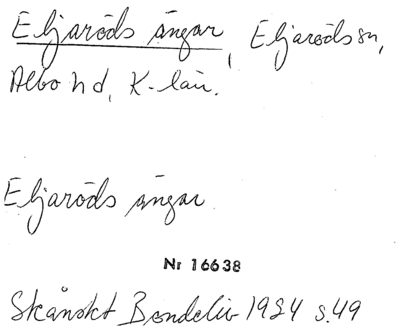 Eljaröds ängar, Eljaröds sn,
Albo hd, K-län.
Eljaröds ängar
Nr 16638
Skånskt Bondeliv 1924 s.49